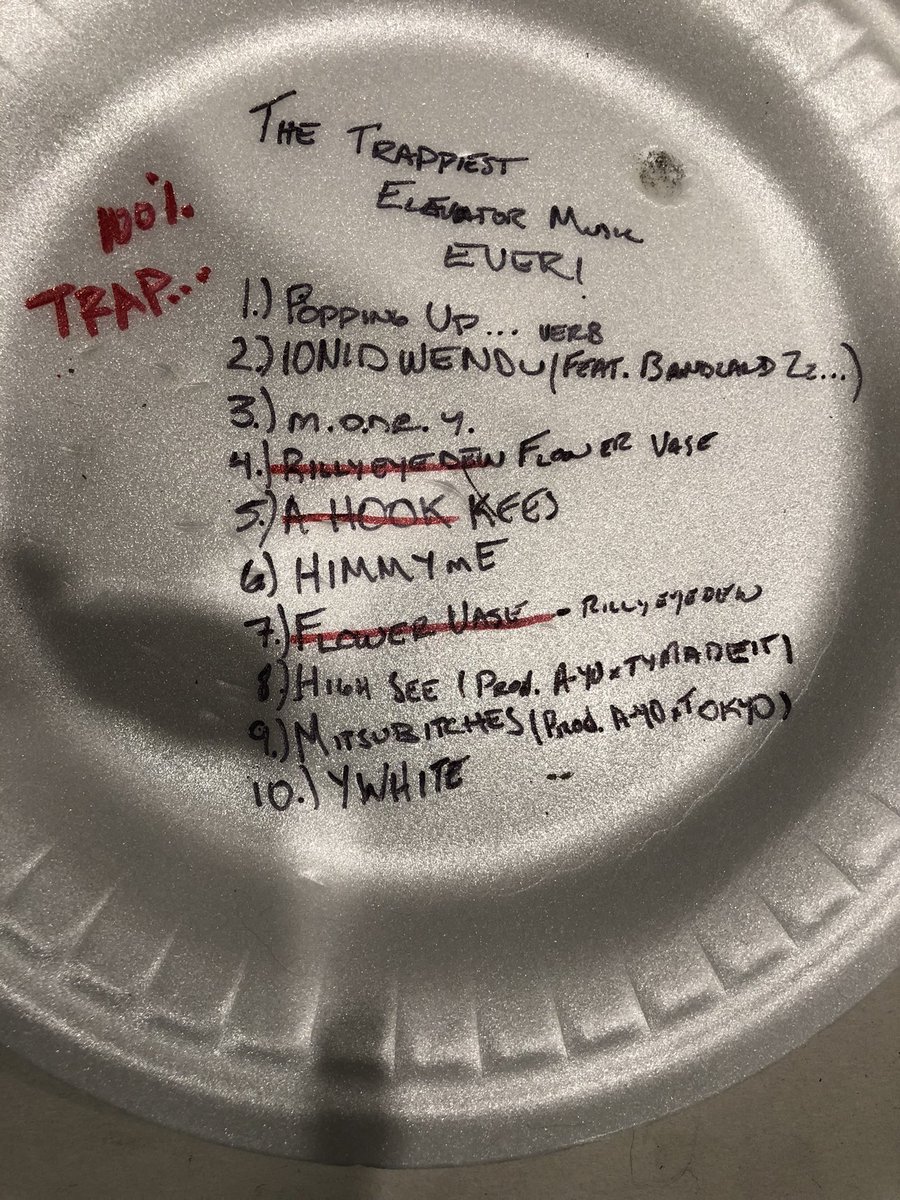 THE TRAPPIEST
ELEVATOR MUSIC
EVER!
100%
TRAP...
1.) POPPING UP... VERB
2.) IONIDWENDU (FEAT. BANDLAND Zz...)
3.) m.o.n.e.y.
4.) RILLYEYEDEW FLOWER VASE
5.) A HOOK KEES
6.) HIMMYmE
7.) FLOWER VASE - RILLYEYEDEW
8.) HIGH SEE (PROD. A-YO x TYMADEIT)
9.) MITSUBITCHES (PROD. A-YO x TOKYO)
10.) YWHITE --